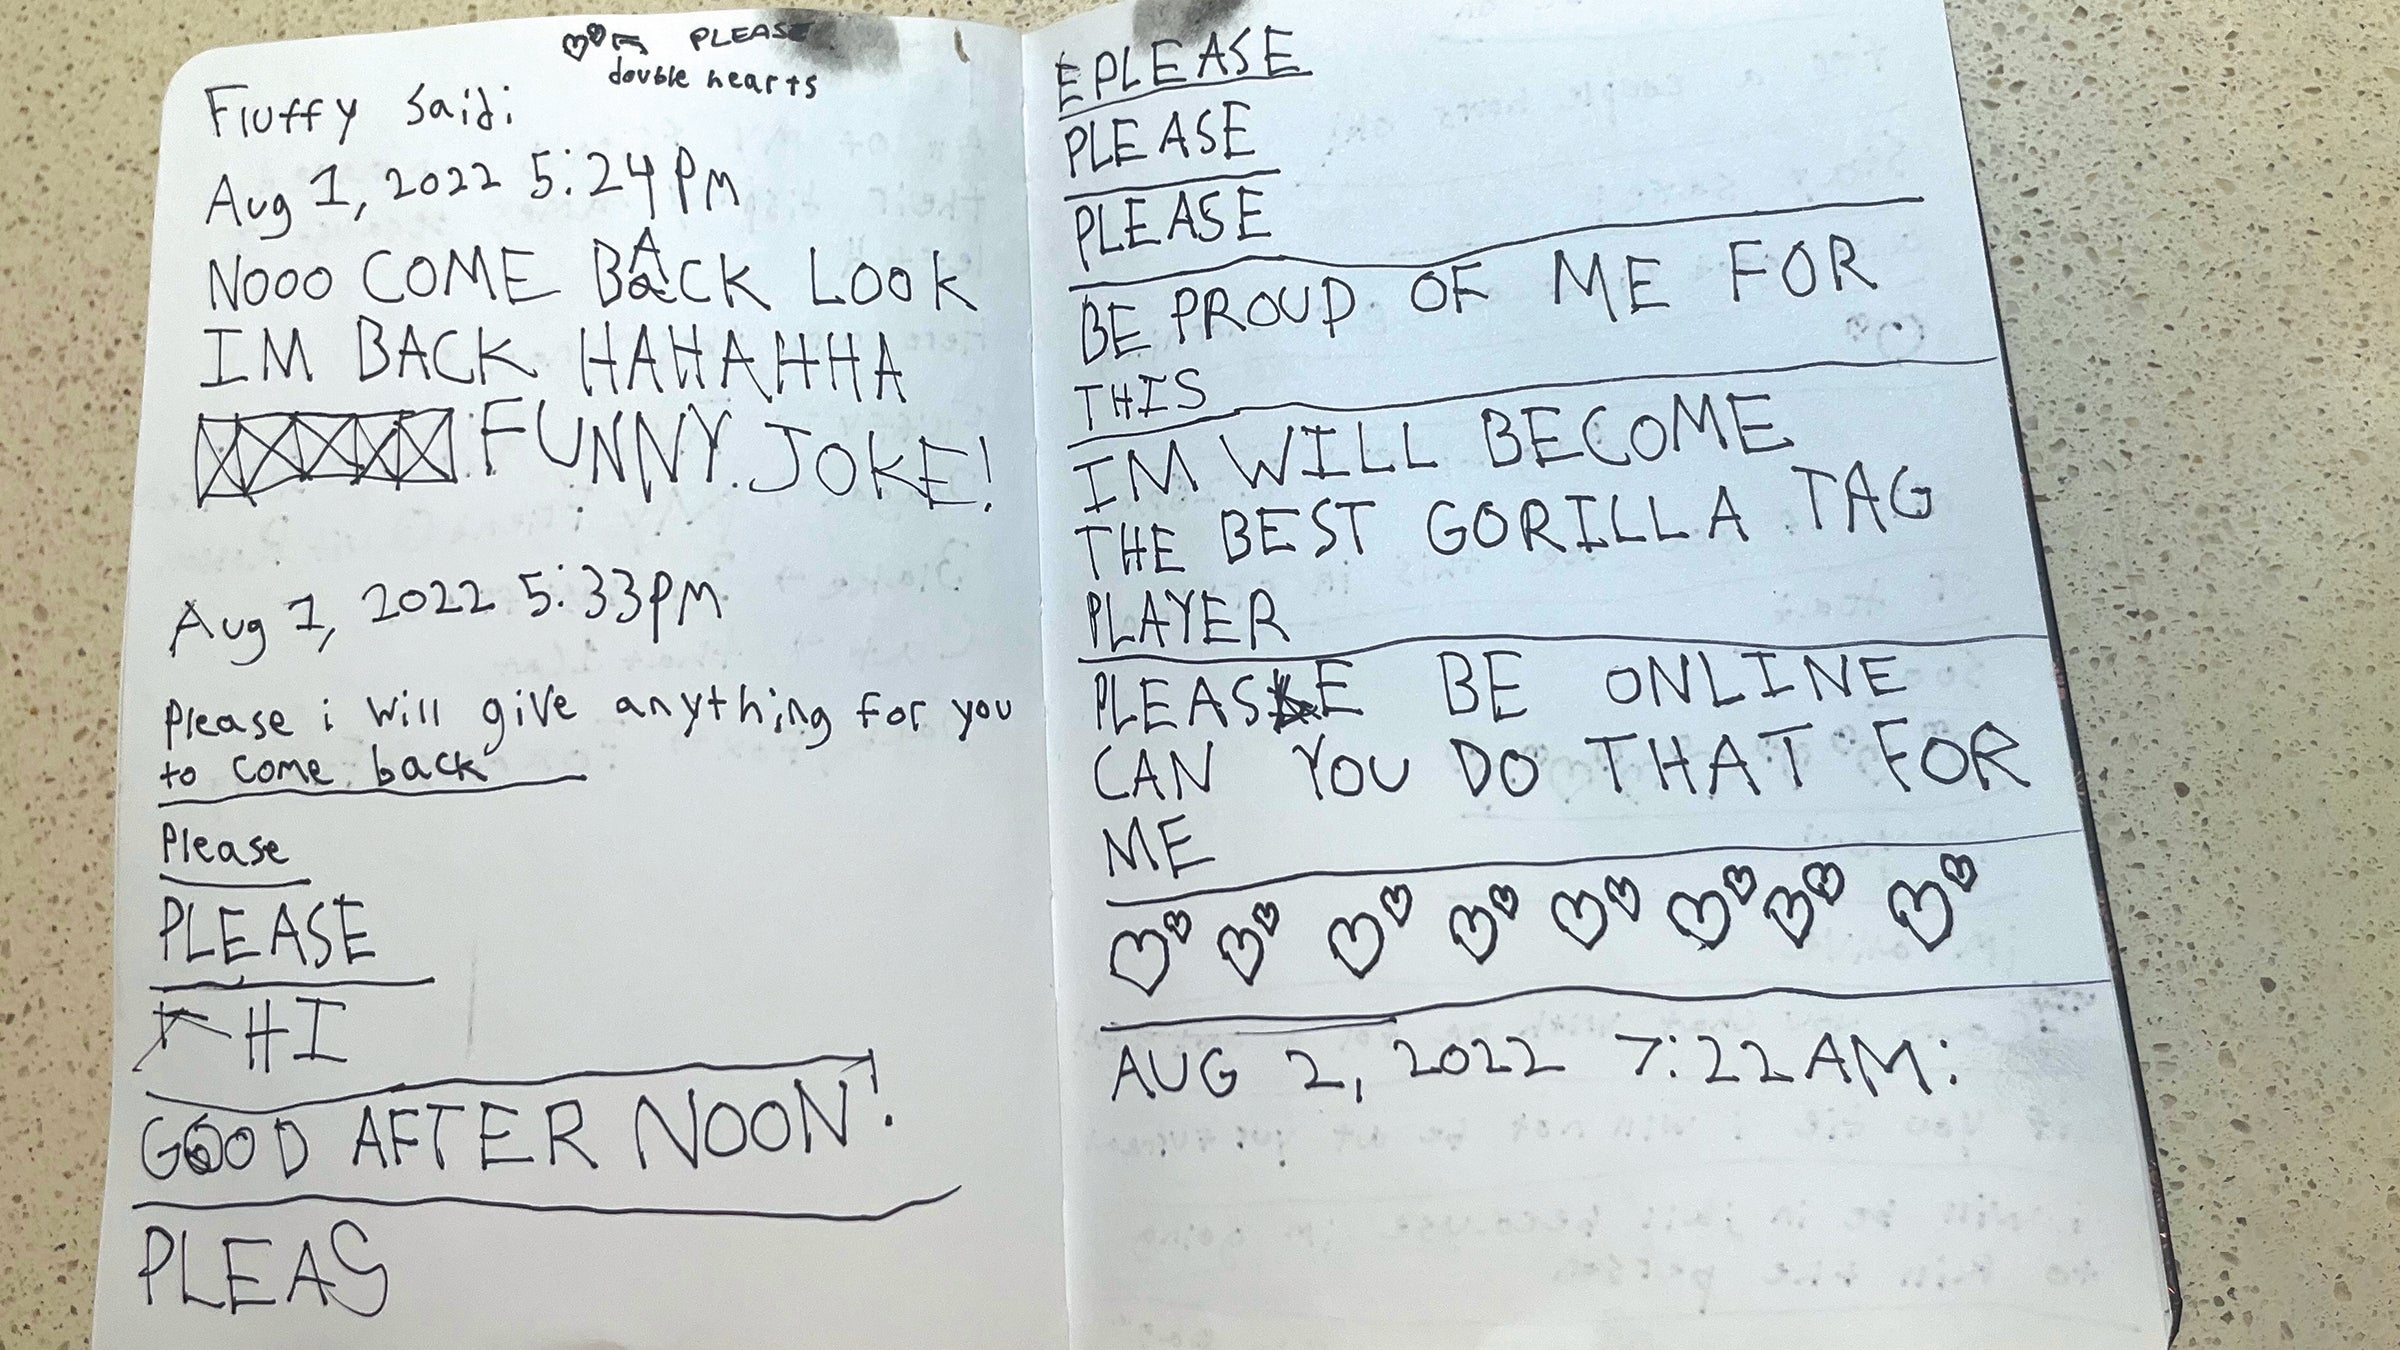 PLEASE
double hearts
Fluffy said:
Aug 1, 2022 5:24 PM
NOOO COME BACK LOOK
IM BACK HAHAHHA
FUNNY JOKE!
Aug 1, 2022 5:33PM
Please i will give anything for you
to come back
Please
PLEASE
HI
GOOD AFTER NOON!
PLEAS
E PLEASE
PLEASE
PLEASE
BE PROUD OF ME FOR
THIS
IM WILL BECOME
THE BEST GORILLA TAG
PLAYER
PLEASE BE ONLINE
CAN YOU DO THAT FOR
ME
AUG 2, 2022 7:22AM: